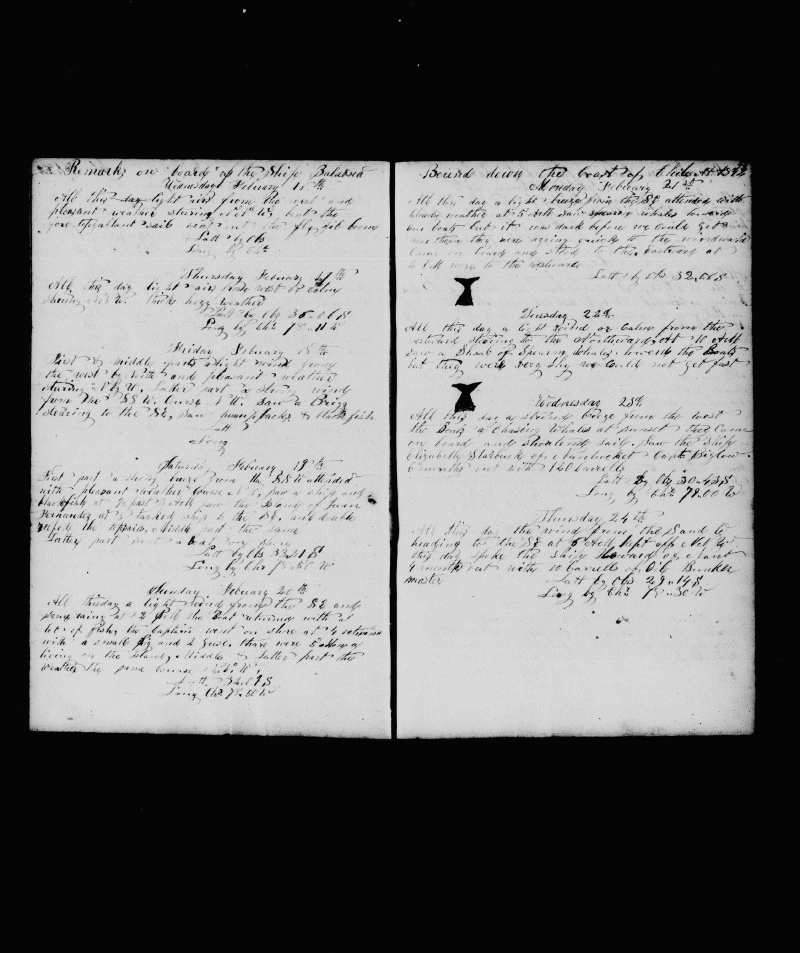 Remarks on board of the Ship
Wednesday Febuary 16th
All this day light airs from the west and
pleasant weather stering N W bent the
fore topgallant sail sent out the fly gib boom
Latt by Obs
Long by Chr
Thursday Febuary 17th
All this day light airs from west or calm
stering N W thick hazy weather
Latt by Obs 36-06 S
Long by Chr 78-11 W
Friday Febuary 18th
First & middle parts a light wind from
the west by with and pleasant weather
stering N W Latter part a strong wind
from the S W Course N W Saw a Brigg
stearing to the SE, saw humpbacks & blackfish
Latt
Long
Saturday Febuary 19th
First part a strong breze from the SSW attended
with pleasant weather Course N W, saw a ship and
blackfish at past 7 AM saw the Island of Juan
Fernandez at tacked ship to the SE, and double
refed the topsails. Middle part the same
Latter part sent a Boat on shore
Latt by Obs 33 31 S
Long by Chr 78-50 W
Sunday Febuary 20th
All this day a light wind from the SE and
some rain at 2 PM the Boat returned with a
lot of fish, the Captain went on shore at 4 returned
with a small pig and 2 Geese. there were 5
living on the Island, Middle & Latter part the
weather the same Course
Latt 34.01 S
Long Chr 78-50 W
Bound down the Coast of Chile
Monday Febuary 21st
All this day a light breeze from the SE attended with
cloudy weather at 5 PM saw sperm whales
our boats but it was dark before we could get
them they were going quick to the windward
Came on board and stood to the Eastward at
2 AM wore to the westward
Latt by Obs 32.06 S
Tuesday 22d
All this day a light wind or calm from the
westward stering to the Northward, At 10 AM
saw a Shoal of Sperm whales, lowerd the Boats
but they were very shy we could not get fast
Wednesday 23d
All this day a strong breze from the west
the Boats a chasing whales at sunset they Came
on board and shortened sail, Saw the Ship
Elizabeth Starbuck of Nantucket Capt
6 months out with 160 barrels
Latt By Obs 30-43 S
Long by Chr 78.00 W
Thursday 24th
All this day the wind from the S and W
heading to the SE at 6 AM kept off N by W
this day spoke the Ship Howard of Nant
4 months out with 10 barrels of Oil Bunker
master
Latt by Obs 29-14 S
Long by Chr 78-30 W